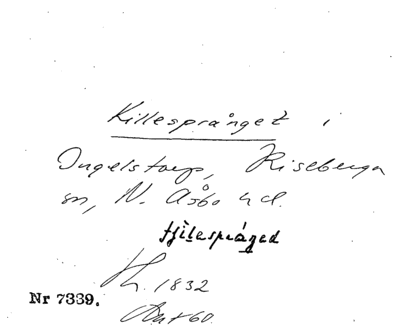 Killesprånget i
Ingelstorp, Riseberga
sn, N. Åsbo hd.
tjilespråged
1832
Nr 7339.